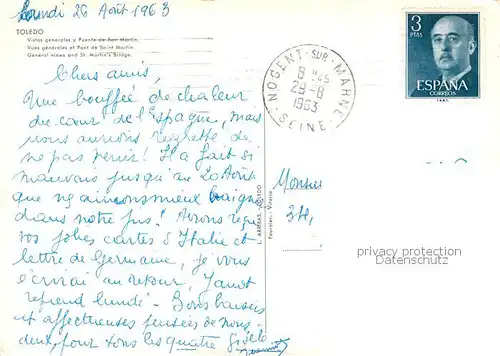 Lundi 26 Août 1963
TOLEDO
Vistas generales y Puente de San Martín.
Vues générales et Pont de Saint Martin.
General views and St. Martin's Bridge.
Chers amis,
Une bouffée de chaleur
du cœur de l'Espagne, mais
nous aurions regretté de
ne pas venir! Il a fait si
mauvais jusqu'au 20 Août
que
dans notre jus! Avons reçu
vos jolies cartes d'Italie et
lettre de Germaine, je vous
écrirai au retour,
reprend lundi - Bons baisers
et affectueuses pensées de nous
deux, pour tous les quatre Gisèle
3 PTAS
ESPAÑA
CORREOS
F.N.M.T.
NOGENT-SUR-MARNE
8 H45
29-8
1963
SEINE
Monsieur
L. ARRIBAS. TOLEDO
Fournier.-Vitoria
privacy protection
Datenschutz